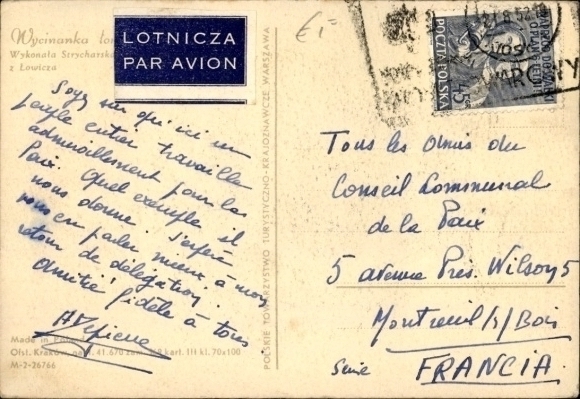 Wycinanka
Wykonała Strycharska
z Łowicza
LOTNICZA
PAR AVION
Soyez sûr qu'ici un
peuple entier travaille
admirablement pour la
Paix. Quel exemple il
nous donne. J'espère
vous en parler mieux, à mon
retour de délégation.
Amitié fidèle à tous
Made in Poland
Ofst. Kraków zam. 41.670 kart. III kl. 70x100
M-2-26766
POLSKIE TOWARZYSTWO TURYSTYCZNO-KRAJOZNAWCZE WARSZAWA
€1-
POCZTA POLSKA
45
Tous les Amis du
Conseil Communal
de la Paix
5 avenue Prés. Wilson 5
Montreuil/s/Bois
Seine FRANCIA